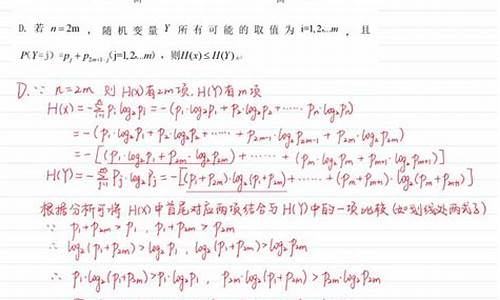 D. 若 n=2m ， 随机变量 Y 所有可能的取值为 i=1,2,...m ， 且
P(Y=j) =p_j+p_{2m+1-j}(j=1,2,...m) ，则H(x)≤H(Y)
D. ∵ n=2m 则 H(x)有2m项, H(Y)有m项
H(x)=-∑p_i log₂p_i = -(p₁·log₂p₁+p₂·log₂p₂+······p_n·log₂p_n)
=-(p₁·log₂p₁+p₂·log₂p₂+······+p_{2m-1}·log₂p_{2m-1}+p_{2m}·log₂p_{2m})
=-[(p₁·log₂p₁+p_{2m}·log₂p_{2m})+······+(p_m·log₂p_m+p_{m+1}·log₂p_{m+1})]
H(Y)=-∑p_j·log₂p_j=-[(p₁+p_{2m})·log₂(p₁+p_{2m})+······+(p_m+p_{m+1})·log₂(p_m+p_{m+1})]
根据分析可将 H(x)中首尾对应两项结合与H(Y)中的一项比较(如划线处两式)
∵ p₁+p_{2m}>p₁ , p₁+p_{2m}>p_{2m}
∴ log₂(p₁+p_{2m})>log₂p₁ , log₂(p₁+p_{2m})>log₂p_{2m}
∴ p₁·log₂(p₁+p_{2m})>p₁·log₂p₁ , p_{2m}·log₂(p₁+p_{2m})>p_{2m}·log₂p_{2m}